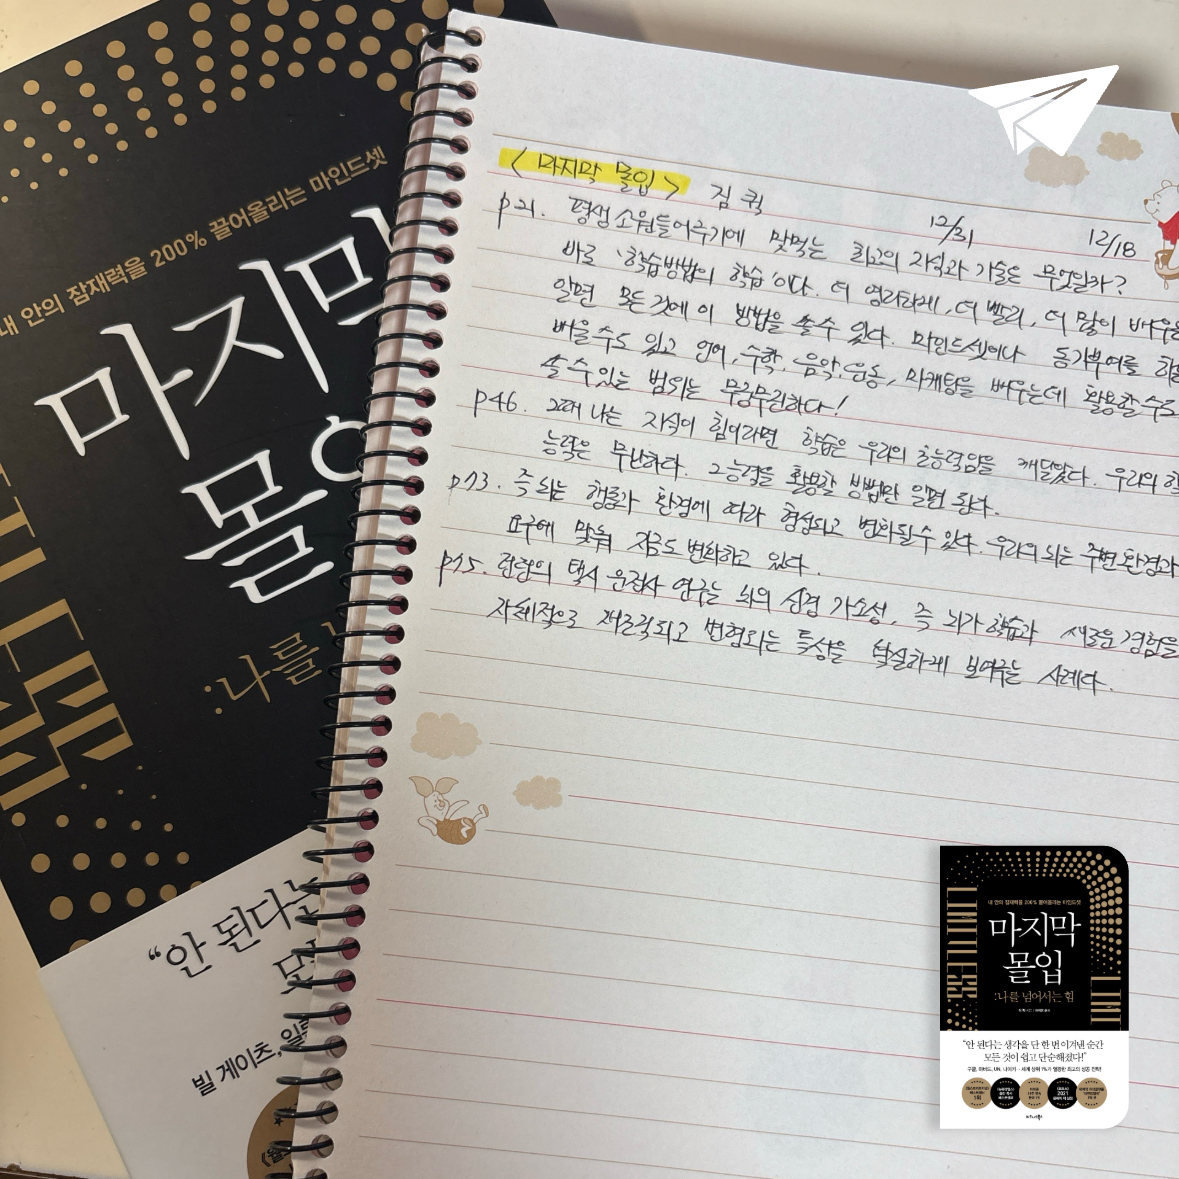 내 안의 잠재력을 200% 끌어올리는 마인드셋
마지막
몰입
:나를
"안 된다는
빌 게이츠, 일론
<마지막 몰입> 짐 퀵 12/31 12/18
p21. 평생 소원들어주기에 맞먹는 최고의 지식과 기술은 무엇일까?
바로 '학습방법의 학습'이다. 더 영리하게, 더 빨리, 더 많이 배우는
알면 모든 것에 이 방법을 쓸 수 있다. 마인드셋이나 동기부여를
배울 수도 있고 언어, 수학, 음악, 운동, 마케팅을 배우는데 활용할 수도
쓸 수 있는 범위는 무궁무진하다!
p46. 그때 나는 지식이 힘이라면 학습은 우리의 초능력임을 깨달았다. 우리의
능력은 무한하다. 그 능력을 활용할 방법만 알면 된다.
p73. 즉 뇌는 행동과 환경에 따라 형성되고 변화될 수 있다. 우리의 뇌는 주변 환경과
요구에 맞춰 지금도 변화하고 있다.
p75. 런던의 택시 운전사 연구는 뇌의 신경 가소성, 즉 뇌가 학습과 새로운 경험을
자체적으로 재조직되고 변형되는 특성을 확실하게 보여주는 사례다.
내 안의 잠재력을 200% 끌어올리는 마인드셋
마지막
몰입
:나를 넘어서는 힘
LIMITLESS
"안 된다는 생각을 단 한 번 이겨낸 순간
모든 것이 쉽고 단순해졌다!"
구글, 하버드, UN, 나이키 - 세계 상위 1%가 열광한 최고의 성공 전략!